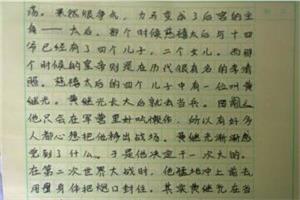 荡。果然很争气，力争变成了后宫的主
角——太后。那个时候慈禧太后与十四
爷已经有了四个儿子，二个女儿。西那
个时候的皇帝则是在历代很有名的李清
照。慈禧太后的四个儿子中有一位叫黄
继光。黄继光长大后就去当兵。因
他只会在军营里好吃懒作，所以有好多
人都心想把他转出战场。黄继光渐渐感
觉到了什么。于是他决定干一次大的。
在第二次世界大战时，他猛地冲上前去，
用身体把炮口封住。其实黄继光在当